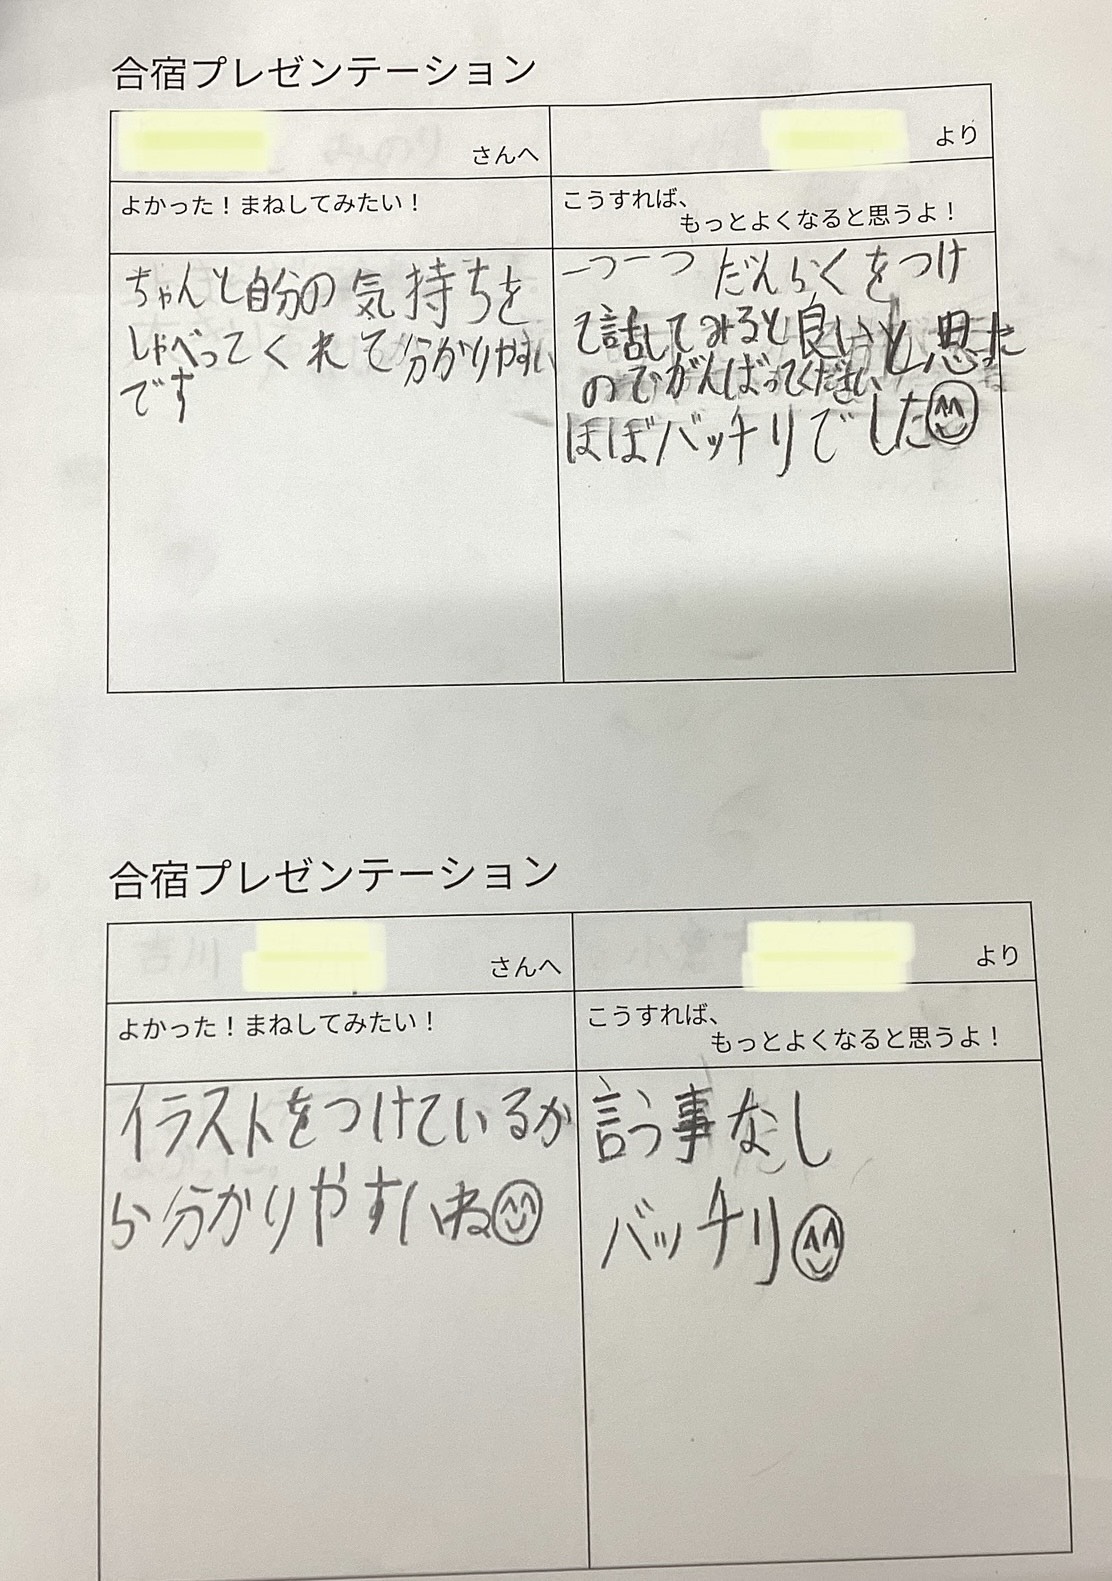 合宿プレゼンテーション
さんへ
より
よかった！まねしてみたい！
こうすれば、
もっとよくなると思うよ！
ちゃんと自分の気持ちを
しゃべってくれて分かりやすい
です
一つ一つ だんらくをつけ
て話してみると良いと思った
のでがんばってください
ほぼバッチリでした
合宿プレゼンテーション
さんへ
より
よかった！まねしてみたい！
こうすれば、
もっとよくなると思うよ！
イラストをつけているか
ら分かりやすいね
言う事なし
バッチリ